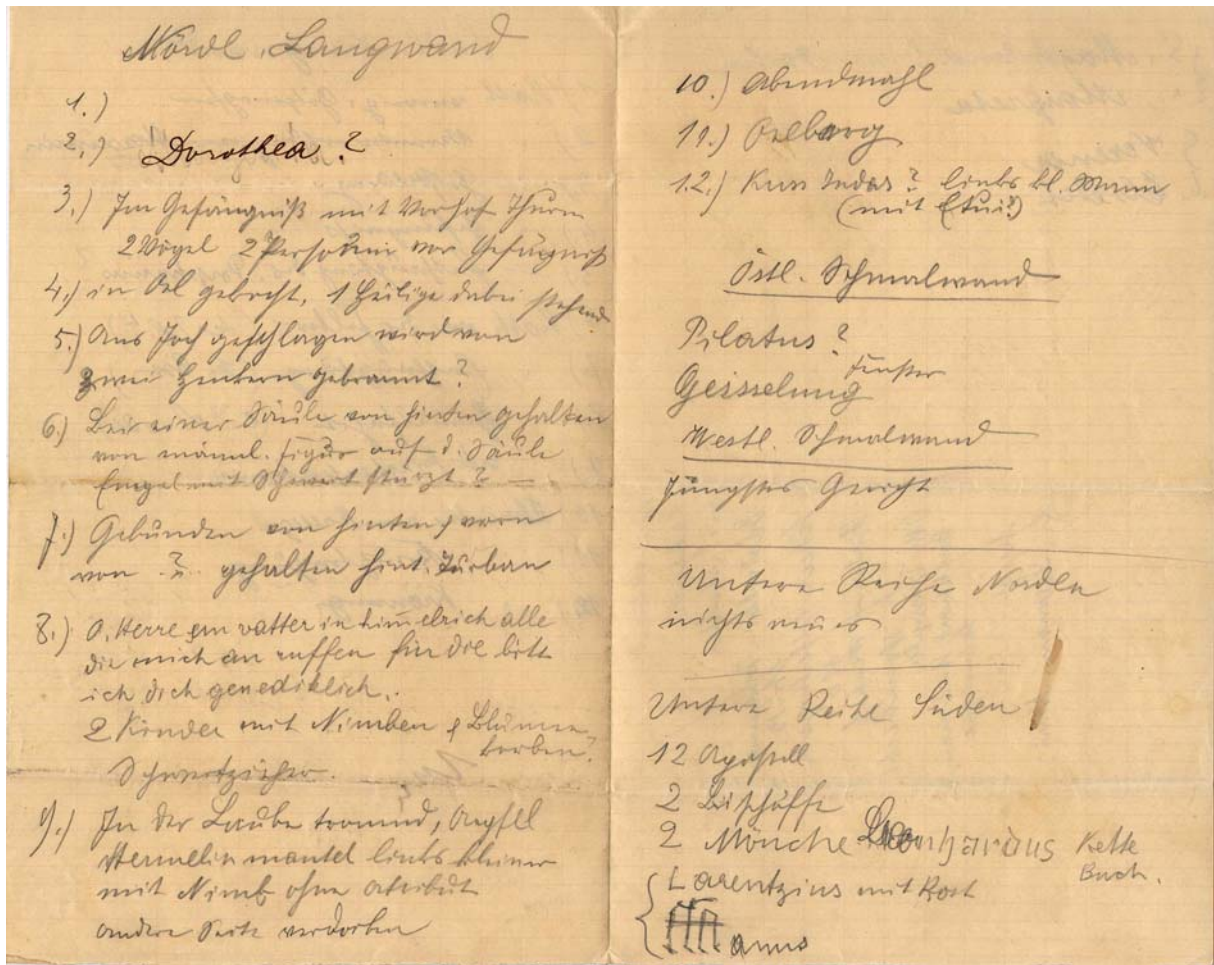 Nördl. Langwand
1.)
2.) Dorothea?
3.) Im Gefängniß mit Vorhof Thurm
2 Vögel 2 Personen vor Gefängniß
4.) in Oel gekocht, 1 Heilige dabei stehend
5.) Ans Joch geschlagen wird von
zwei Henkern gebrannt?
6.) Bei einer Säule von hinten gehalten
von männl. Figur auf d. Säule
Engel mit Schwert stürzt? —
7.) Gebunden von hinten, vorn
von ? gehalten hint. Turban
8.) O. Herre vatter in himelrich alle
die mich an ruffen für die bitt
ich dich genediklich.
2 Kinder mit Nimben & Blumen-
korben?
Schwertzieher.
9.) In der Laube
Hermelin mantel links kleiner
mit Nimb ohne Atribut
andere Seite verdorben
10.) Abendmahl
11.) Oelberg
12.) Kuss Judas? links kl. Mann
(mit Etui?)
Östl. Schmalwand
Pilatus?
Fenster
Geisselung
Westl. Schmalwand
Jüngstes Gericht
Untere Reihe Norden
nichts neues
Untere Reihe Süden
12 Apostell
2 Bischöffe
2 Mönche Leonhardus Kette
Buch.
Larentzius mit Rost